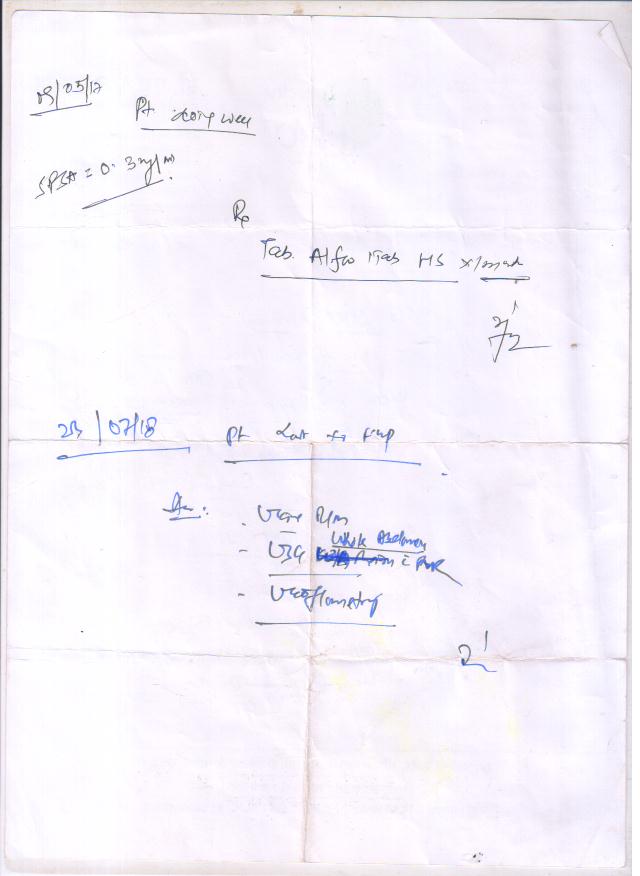 09/05/17
Pt doing well
SPSA = 0.3 ng/ml
Rx
Tab. Alfoo 1 tab HS x 1 month
23/07/18
Pt Lost to F/up
Adv:
. Urine R/M
- USG Whole Abdomen c PVR
- Uroflometry